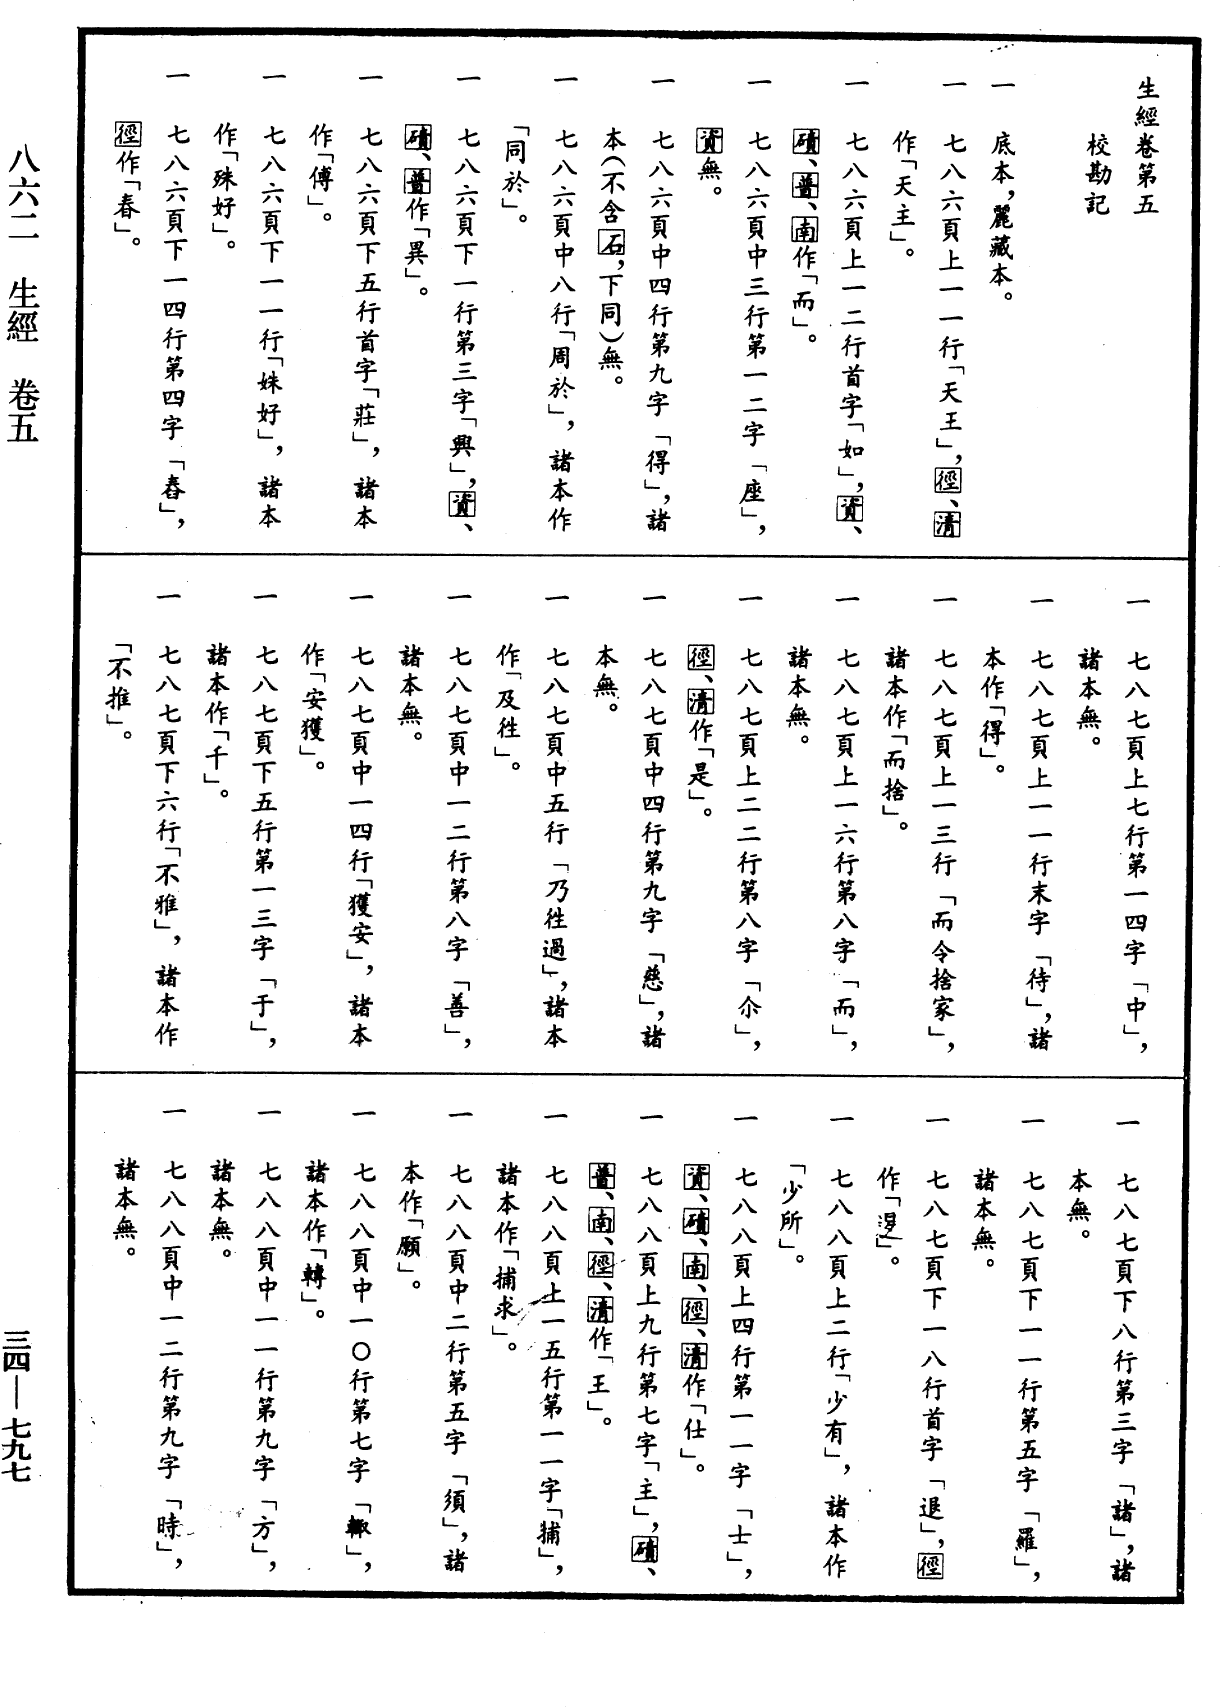 生經卷第五
校勘記
一 底本，麗藏本。
一 七八六頁上一一行「天王」，徑、清
作「天主」。
一 七八六頁上一二行首字「如」，資、
磧、普、南作「而」。
一 七八六頁中三行第一二字「座」，
資無。
一 七八六頁中四行第九字「得」，諸
本（不含石，下同）無。
一 七八六頁中八行「周於」，諸本作
「同於」。
一 七八六頁下一行第三字「興」，資、
磧、普作「異」。
一 七八六頁下五行首字「莊」，諸本
作「傅」。
一 七八六頁下一一行「姝好」，諸本
作「殊好」。
一 七八六頁下一四行第四字「舂」，
徑作「春」。
一 七八七頁上七行第一四字「中」，
諸本無。
一 七八七頁上一一行末字「待」，諸
本作「得」。
一 七八七頁上一三行「而令捨家」，
諸本作「而捨」。
一 七八七頁上一六行第八字「而」，
諸本無。
一 七八七頁上二二行第八字「尒」，
徑、清作「是」。
一 七八七頁中四行第九字「慈」，諸
本無。
一 七八七頁中五行「乃徃過」，諸本
作「及徃」。
一 七八七頁中一二行第八字「善」，
諸本無。
一 七八七頁中一四行「獲安」，諸本
作「安獲」。
一 七八七頁下五行第一三字「于」，
諸本作「千」。
一 七八七頁下六行「不雅」，諸本作
「不推」。
一 七八七頁下八行第三字「諸」，諸
本無。
一 七八七頁下一一行第五字「羅」，
諸本無。
一 七八七頁下一八行首字「退」，徑
作「」。
一 七八八頁上二行「少有」，諸本作
「少所」。
一 七八八頁上四行第一一字「士」，
資、磧、南、徑、清作「仕」。
一 七八八頁上九行第七字「主」，磧、
普、南、徑、清作「王」。
一 七八八頁上一五行第一一字「捕」，
諸本作「捕求」。
一 七八八頁中二行第五字「須」，諸
本作「願」。
一 七八八頁中一〇行第七字「輙」，
諸本作「轉」。
一 七八八頁中一一行第九字「方」，
諸本無。
一 七八八頁中一二行第九字「時」，
諸本無。
八六二 生經 卷五
三四—七九七